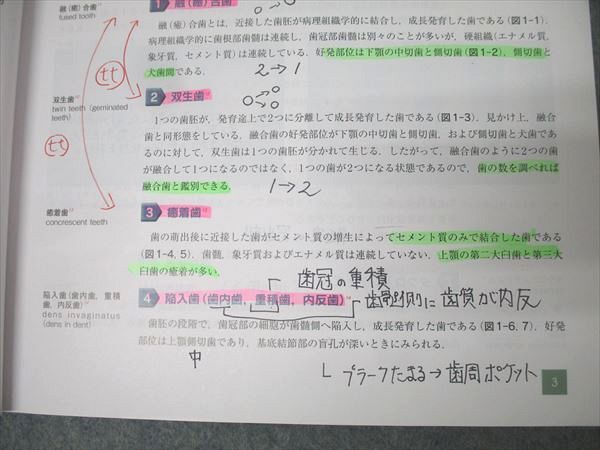 融(癒)合歯
fused tooth
1 融(癒)合歯
融(癒)合歯とは、近接した歯胚が病理組織学的に結合し、成長発育した歯である(図1-1).
病理組織学的に歯根部歯髄は連続し、歯冠部歯髄は別々のことが多いが、硬組織(エナメル質,
象牙質, セメント質)は連続している. 好発部位は下顎の中切歯と側切歯(図1-2), 側切歯と
犬歯間である.
2→1
tt
双生歯
twin teeth (geminated
teeth)
2 双生歯
1つの歯胚が、発育途上で2つに分離して成長発育した歯である(図1-3). 見かけ上, 融合
歯と同形態をしている. 融合歯の好発部位が下顎の中切歯と側切歯, および側切歯と犬歯であ
るのに対して, 双生歯は1つの歯胚が分かれて生じる. したがって, 融合歯のように2つの歯
が融合して1つになるのではなく, 1つの歯が2つになる状態であるので, 歯の数を調べれば
融合歯と鑑別できる.
1→2
tt
癒着歯
concrescent teeth
3 癒着歯
歯の萌出後に近接した歯がセメント質の増生によってセメント質のみで結合した歯である
(図1-4, 5). 歯髄, 象牙質およびエナメル質は連続していない. 上顎の第二大臼歯と第三大
臼歯の癒着が多い.
歯冠の重積
陥入歯(歯内歯, 重積
歯, 内反歯)
dens invaginatus
(dens in dent)
4 陥入歯(歯内歯, 重積歯, 内反歯)
歯髄側に歯質が内反
歯胚の段階で, 歯冠部の細胞が歯髄側へ陥入し, 成長発育した歯である(図1-6, 7). 好発
部位は上顎側切歯であり, 基底結節部の盲孔が深いときにみられる.
中
プラークたまる→歯周ポケット
3